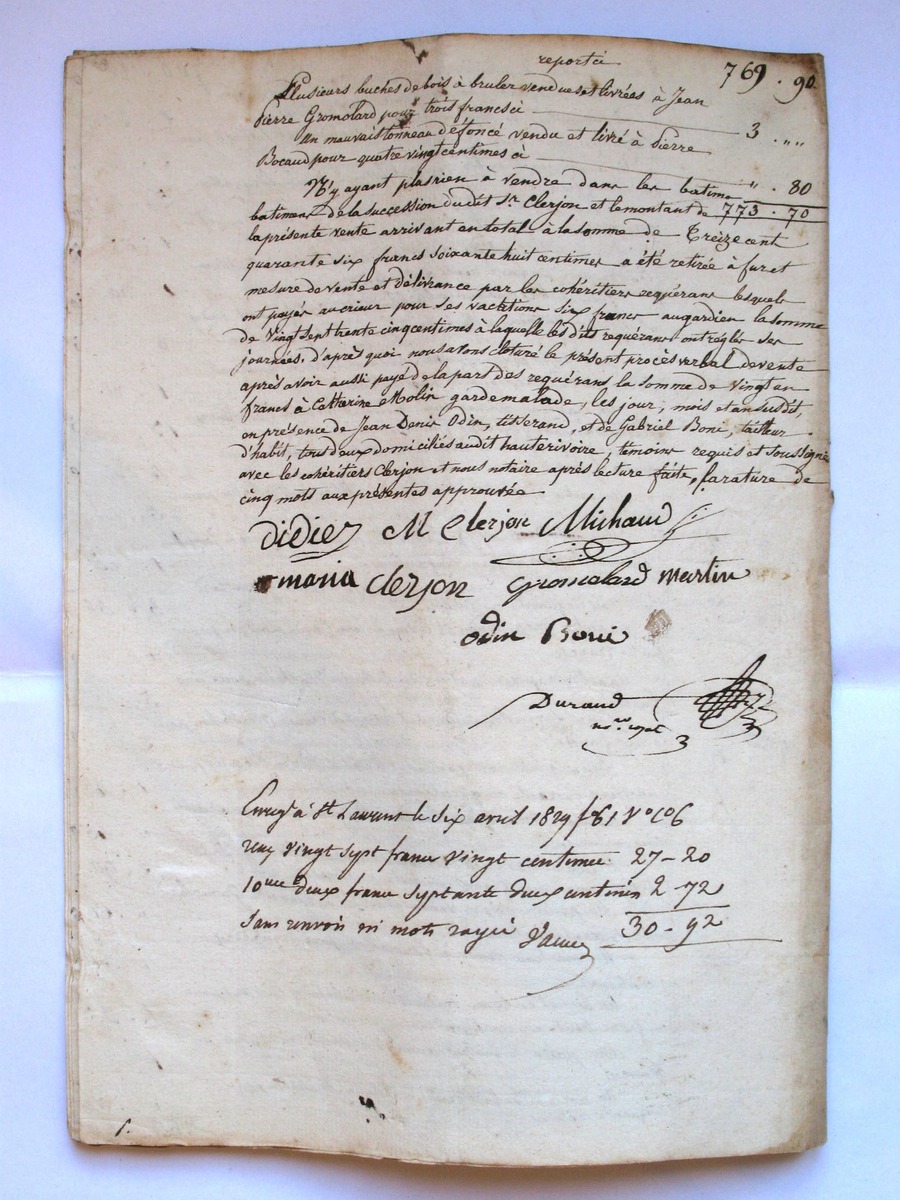 reporté 769 . 90
Plusieurs buches de bois à bruler vendues et livrées à Jean
Pierre Gromolard pour trois francs ci 3 . ""
Un mauvais tonneau défoncé vendu et livré à Pierre
Bocaud pour quatre vingt centimes ci " . 80
N'y ayant plus rien à vendre dans les batims
batiments de la succession dudit Sr. Clerjon et le montant de 773 . 70
la présente vente arrivant en total à la somme de Treize cent
quarante six francs soixante huit centimes a été retirée à fur et
mesure de vente et délivrance par les cohéritiers requérans lesquels
ont payés au crieur pour ses vacations six francs au gardien la somme
de vingt sept trente cinq centimes à laquelle lesdits requérans ont réglés ses
journées. d'après quoi nous avons cloturé le présent procès verbal de vente
après avoir aussi payé de la part des requérans la somme de vingt un
francs à Catherine Molin garde malade, les jour, mois et an susdit,
en présence de Jean Denis Odin, tisserand, et de Gabriel Boni, tailleur
d'habit, tous deux domiciliés audit hauterivoire, témoins requis et soussignés
avec les cohéritiers Clerjon et nous notaire après lecture faite, la rature de
cinq mots aux présentes approuvée
didiez M Clerjon Michaud
maria Clerjon Gromolard Martin
odin Boni
Durand
nore
Enregé à St Laurent le six avril 1829 fo 61 Vo Co 6
reçu vingt sept francs vingt centimes 27 - 20
10eme deux francs septante deux centimes 2 72
Sans renvoi ni mots rayés 30 - 92